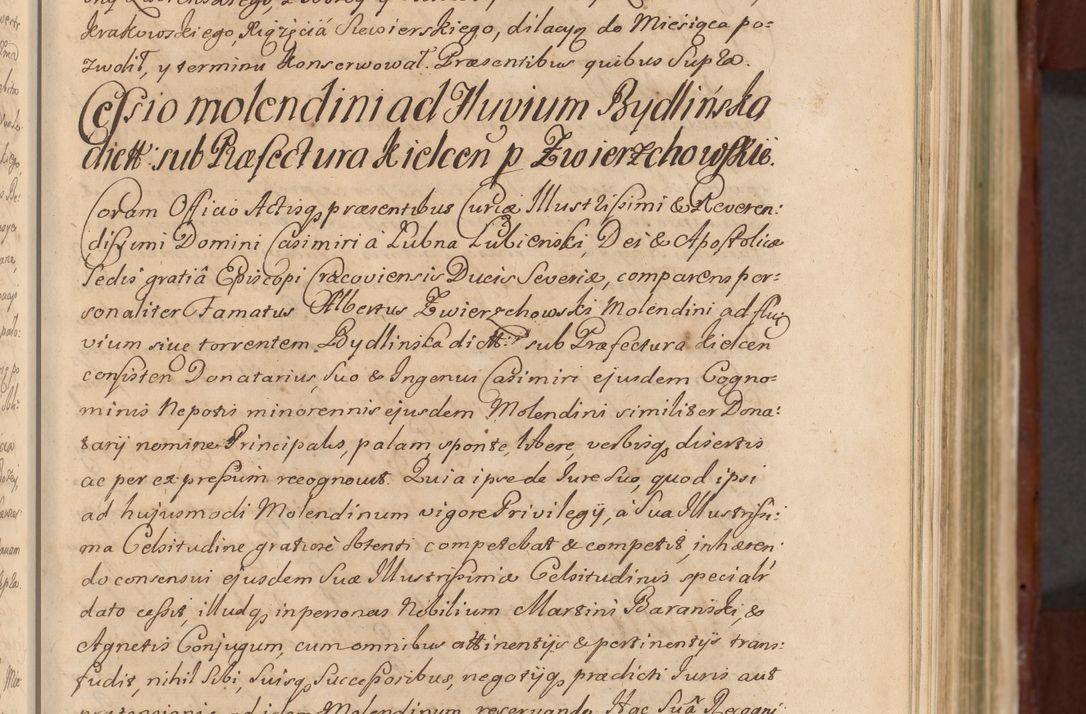 Krakowskiego, Xiążęciá Siewierskiego, dilacyą do Miesiąca po-
zwolił, y terminu konserwował. Præsentibus quibus Supra.
Cessio molendini ad Fluvium Bydlińska
dictt: sub Præfectura Kielcen p Zwierzchowskie.
Coram Officio Actisq præsentibus Curiæ Illustrissimi & Reveren:
dissimi Domini Casimiri á Lubna Lubienski, Dei & Apostolicæ
Sedis gratiâ Episcopi Cracoviensis Ducis Severiæ, comparens per-
sonaliter Famatus Albertus Zwierzchowski Molendini ad flu
vium sive torrentem Bydlinska dictt: sub Præfectura Kielcen
consisten Donatarius, Suo & Ingenui Casimiri ejusdem Cogno-
minis Nepotis minorennis ejusdem Molendini similiter Dona-
tarij nomine Principalis, palam, sponte, libere, verbisq disertis
ac per expressum recognovit. Quia ipse de Iure Suo, quod ipsi
ad hujusmodi Molendinum vigore Privilegij, á Sua Illustrissi-
ma Celsitudine gratiosè obtenti competebat & competit, inhæren:
do consensui ejusdem Suæ Illustrissimæ Celsitudinis speciali
dato cessit, illudq, in personas Nobilium Martini Barański, &
Agnetis Conjugum, cum omnibus attinentijs & pertinentijs trans-
fudit, nihil Sibi, Suisq Successoribus, negotijq prædicti Iuris aut
ad idem Molendinum reservando. Hac Suâ